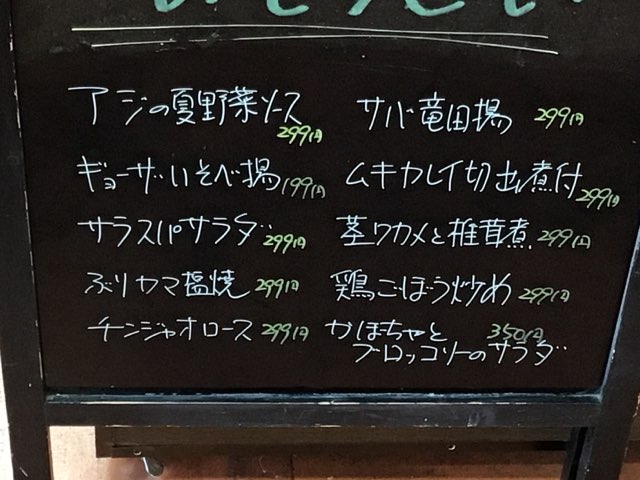 アジの夏野菜ソース
299円
ギョーザいそべ揚 199円
サラスパサラダ 299円
ぶりカマ塩焼 299円
チンジャオロース 299円
サバ竜田揚 299円
ムキカレイ切出煮付
299円
茎ワカメと椎茸煮 299円
鶏ごぼう炒め 299円
かぼちゃと 350円
ブロッコリーのサラダ